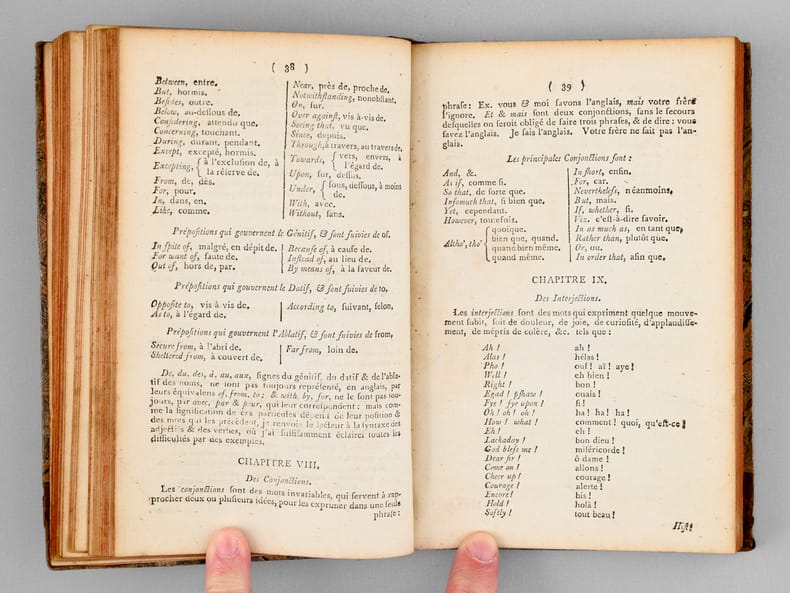 ( 38 )
Between, entre.
But, hormis.
Beſides, outre.
Below, au-deſſous de.
Conſidering, attendu que.
Concerning, touchant.
During, durant, pendant.
Except, excepté, hormis.
Excepting, { à l'excluſion de, à
la réſerve de.
From, de, dès.
For, pour.
In, dans, en.
Like, comme.
Near, près de, proche de.
Notwithſtanding, nonobſtant.
On, ſur.
Over againſt, vis-à-vis de.
Seeing that, vu que.
Since, depuis.
Through, à travers, au travers de.
Towards, { vers, envers, à
l'égard de.
Upon, ſur, deſſus.
Under, { ſous, deſſous, à moins
de.
With, avec.
Without, ſans.
Prépoſitions qui gouvernent le Génitif, & ſont ſuivies de of.
In ſpite of, malgré, en dépit de.
For want of, faute de.
Out of, hors de, par.
Becauſe of, à cauſe de.
Inſtead of, au lieu de.
By means of, à la faveur de.
Prépoſitions qui gouvernent le Datif, & ſont ſuivies de to,
Oppoſite to, vis-à-vis de.
As to, à l'égard de.
According to, ſuivant, ſelon.
Prépoſitions qui gouvernent l'Ablatif, & ſont ſuivies de from,
Secure from, à l'abri de.
Sheltered from, à couvert de.
Far from, loin de.
De, du, des, à, au, aux, ſignes du génitif, du datif & de l'abla-
tif des noms, ne ſont pas toujours repréſenté, en anglais, par
leurs équivalens of, from, to; & with, by, for, ne le ſont pas tou-
jours, par avec, par & pour, qui leur correſpondent : mais com-
me la ſignification de ces particules dépend de leur poſition &
des mots qui les précèdent, je renvoie le lecteur à la ſyntaxe des
adjectifs & des verbes, où j'ai ſuffiſamment éclairci toutes les
difficultés par des exemples.
CHAPITRE VIII.
Des Conjonctions.
Les conjonctions ſont des mots invariables, qui ſervent à rap-
procher deux ou pluſieurs idées, pour les exprimer dans une ſeule
phraſe :
( 39 )
phraſe : Ex. vous & moi ſavons l'anglais, mais votre frère
l'ignore. Et & mais ſont deux conjonctions, ſans le ſecours
deſquelles on ſeroit obligé de faire trois phraſes, & de dire : vous
ſavez l'anglais. Je ſais l'anglais. Votre frère ne ſait pas l'an-
glais.
Les principales Conjonctions ſont :
And, &.
As if, comme ſi.
So that, de ſorte que.
Inſomuch that, ſi bien que.
Yet, cependant.
However, toutefois.
Altho', tho' { quoique.
bien que, quand.
quand bien même.
quand même.
In ſhort, enfin.
For, car.
Nevertheleſs, néanmoins,
But, mais.
If, whether, ſi.
Viz. c'eſt-à-dire ſavoir.
In as much as, en tant que,
Rather than, plutôt que.
Or, ou.
In order that, afin que,
CHAPITRE IX.
Des Interjections.
Les interjections ſont des mots qui expriment quelque mouve-
ment ſubis, ſoit de douleur, de joie, de curioſité, d'applaudiſſe-
ment, de mépris de colère, &c. tels que :
Ah ! ah !
Alas ! hélas !
Pho ! ouf ! aï ! aye !
Well ! eh bien !
Right ! bon !
Egad ! pſhaw ! ouais !
Fye ! fye upon ! fi !
Oh ! oh ! oh ! ha ! ha ! ha !
How ! what ! comment ! quoi, qu'eſt-ce !
Eh ! eh !
Lackaday ! bon dieu !
God bleſs me ! miſéricorde !
Dear ſir ! ô dame !
Come on ! allons !
Cheer up ! courage !
Courage ! alerte !
Encore ! bis !
Hold ! holà !
Softly ! tout beau !
Hiſt!